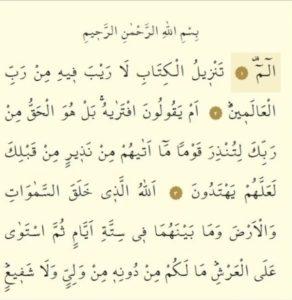 بِسْمِ اللّٰهِ الرَّحْمٰنِ الرَّحٖيمِ
الٓمٓ ۚ ﴿١﴾ تَنْزٖيلُ الْكِتَابِ لَا رَيْبَ فٖيهِ مِنْ رَبِّ
الْعَالَمٖينَؕ ﴿٢﴾ اَمْ يَقُولُونَ افْتَرٰيهُۚ بَلْ هُوَ الْحَقُّ مِنْ
رَبِّكَ لِتُنْذِرَ قَوْمًا مَٓا اَتٰيهُمْ مِنْ نَذٖيرٍ مِنْ قَبْلِكَ
لَعَلَّهُمْ يَهْتَدُونَ ﴿٣﴾ اَللّٰهُ الَّذٖي خَلَقَ السَّمٰوَاتِ
وَالْاَرْضَ وَمَا بَيْنَهُمَا فٖي سِتَّةِ اَيَّامٍ ثُمَّ اسْتَوٰى
عَلَى الْعَرْشِؕ مَا لَكُمْ مِنْ دُونِهٖ مِنْ وَلِيٍّ وَلَا شَفٖيعٍؕ